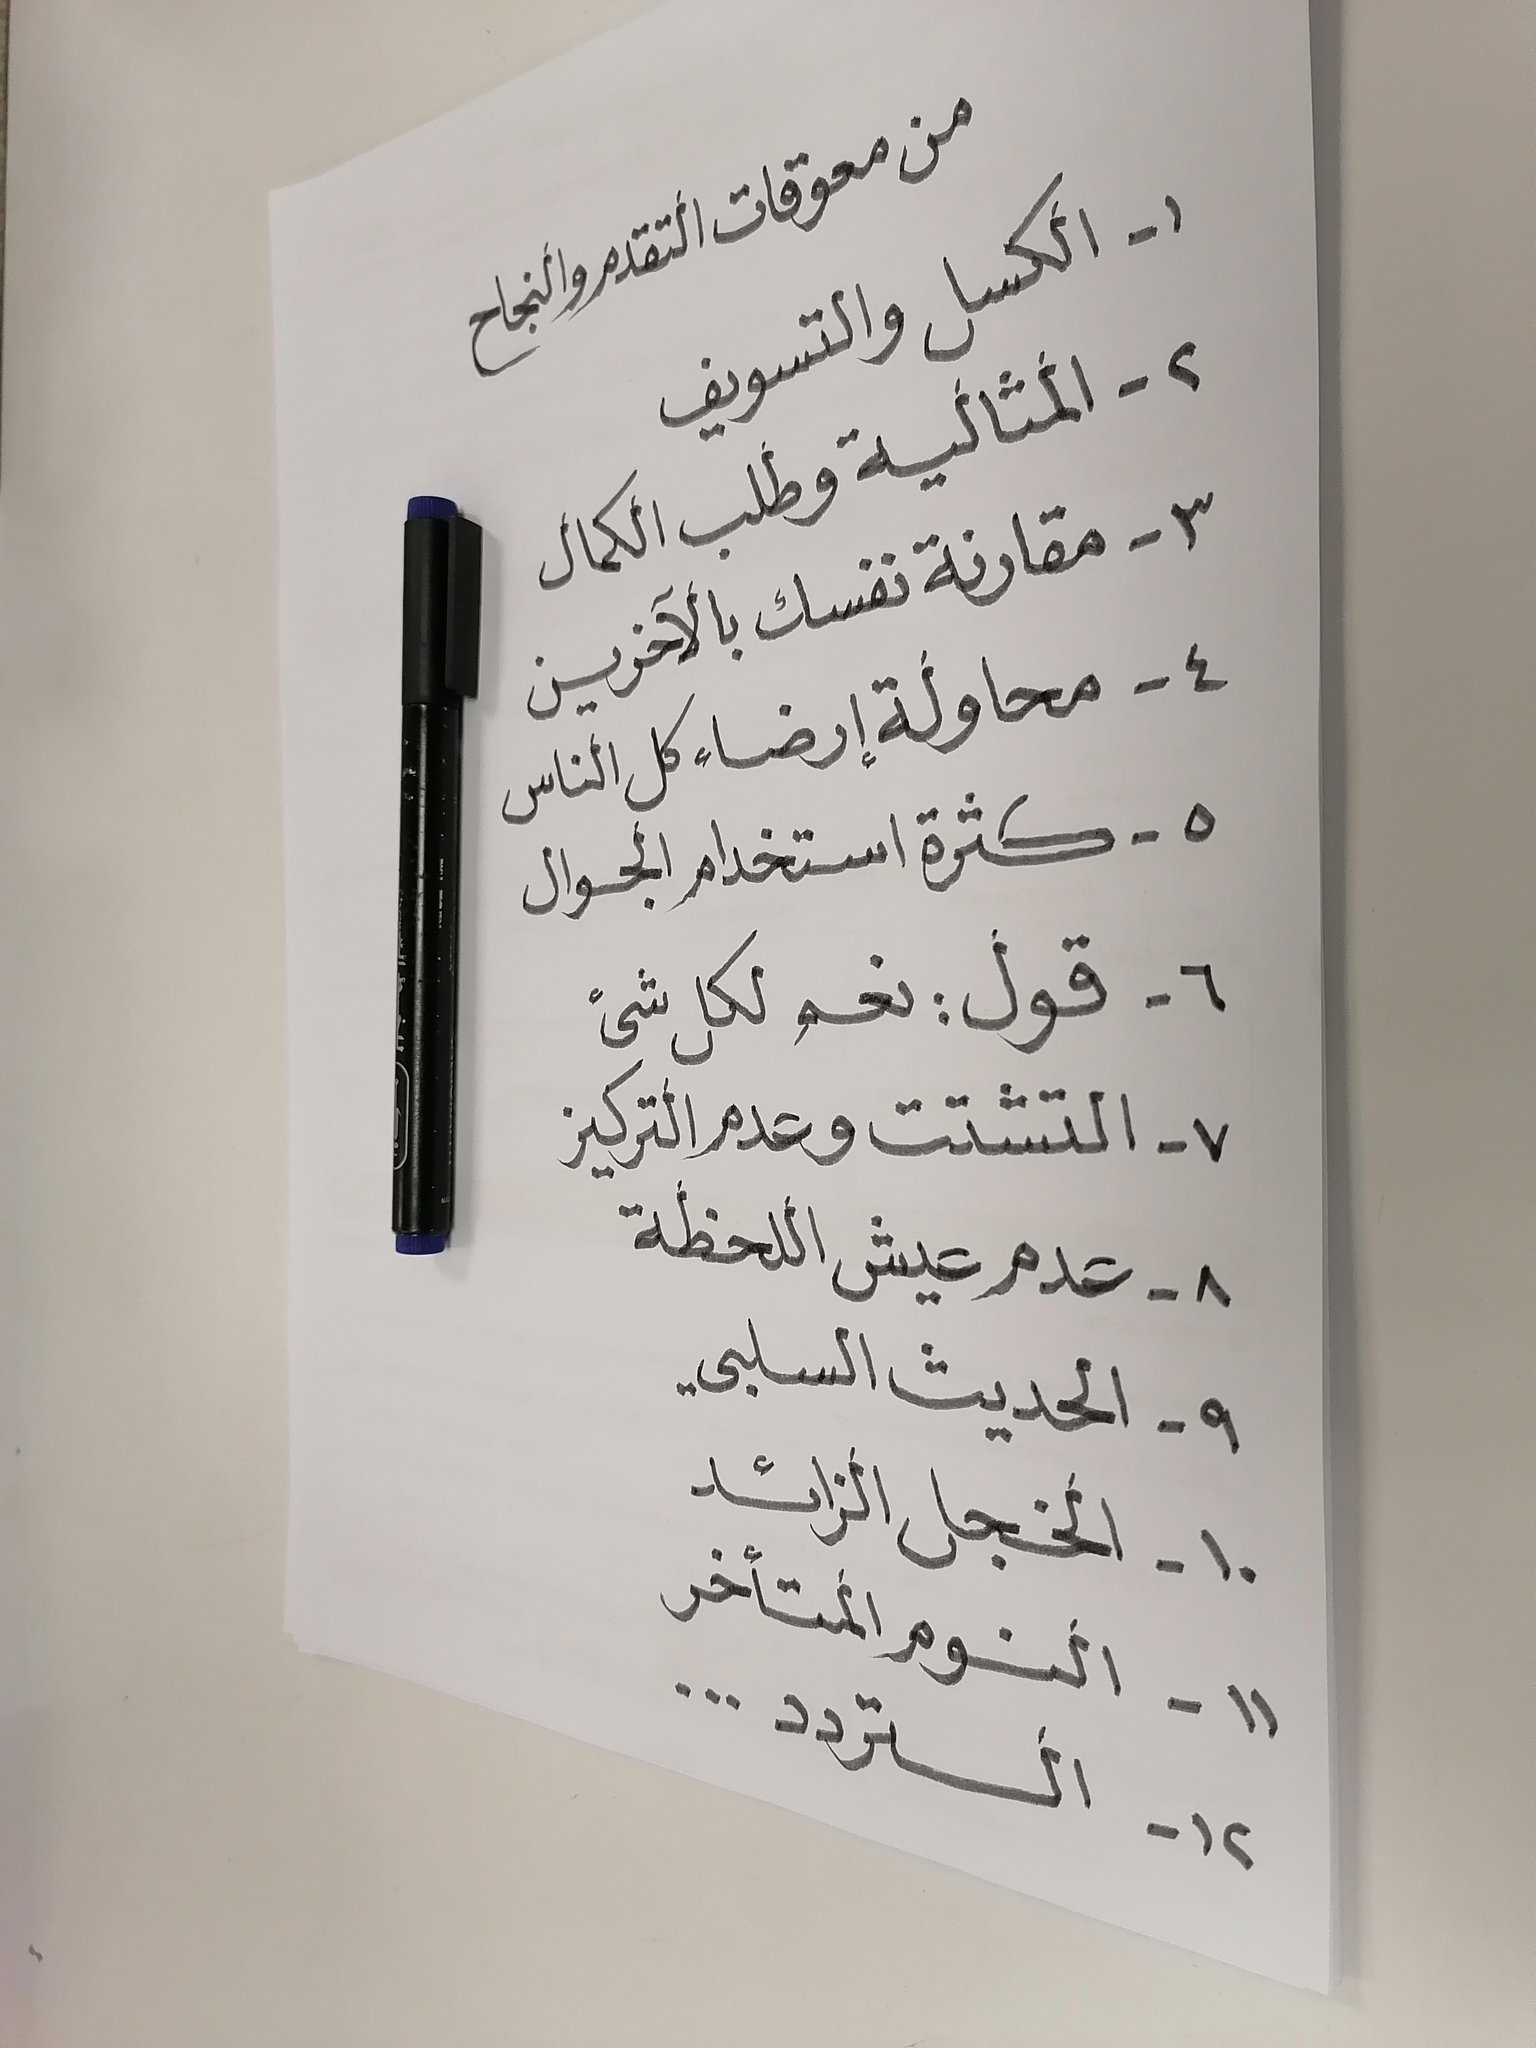 من معوقات التقدم والنجاح
١- الكسل والتسويف
٢- المثالية وطلب الكمال
٣- مقارنة نفسك بالآخرين
٤- محاولة إرضاء كل الناس
٥- كثرة استخدام الجوال
٦- قول: نعم لكل شئ
٧- التشتت وعدم التركيز
٨- عدم عيش اللحظة
٩- الحديث السلبي
١٠- الخجل الزائد
١١- النوم المتأخر
١٢- التردد ...